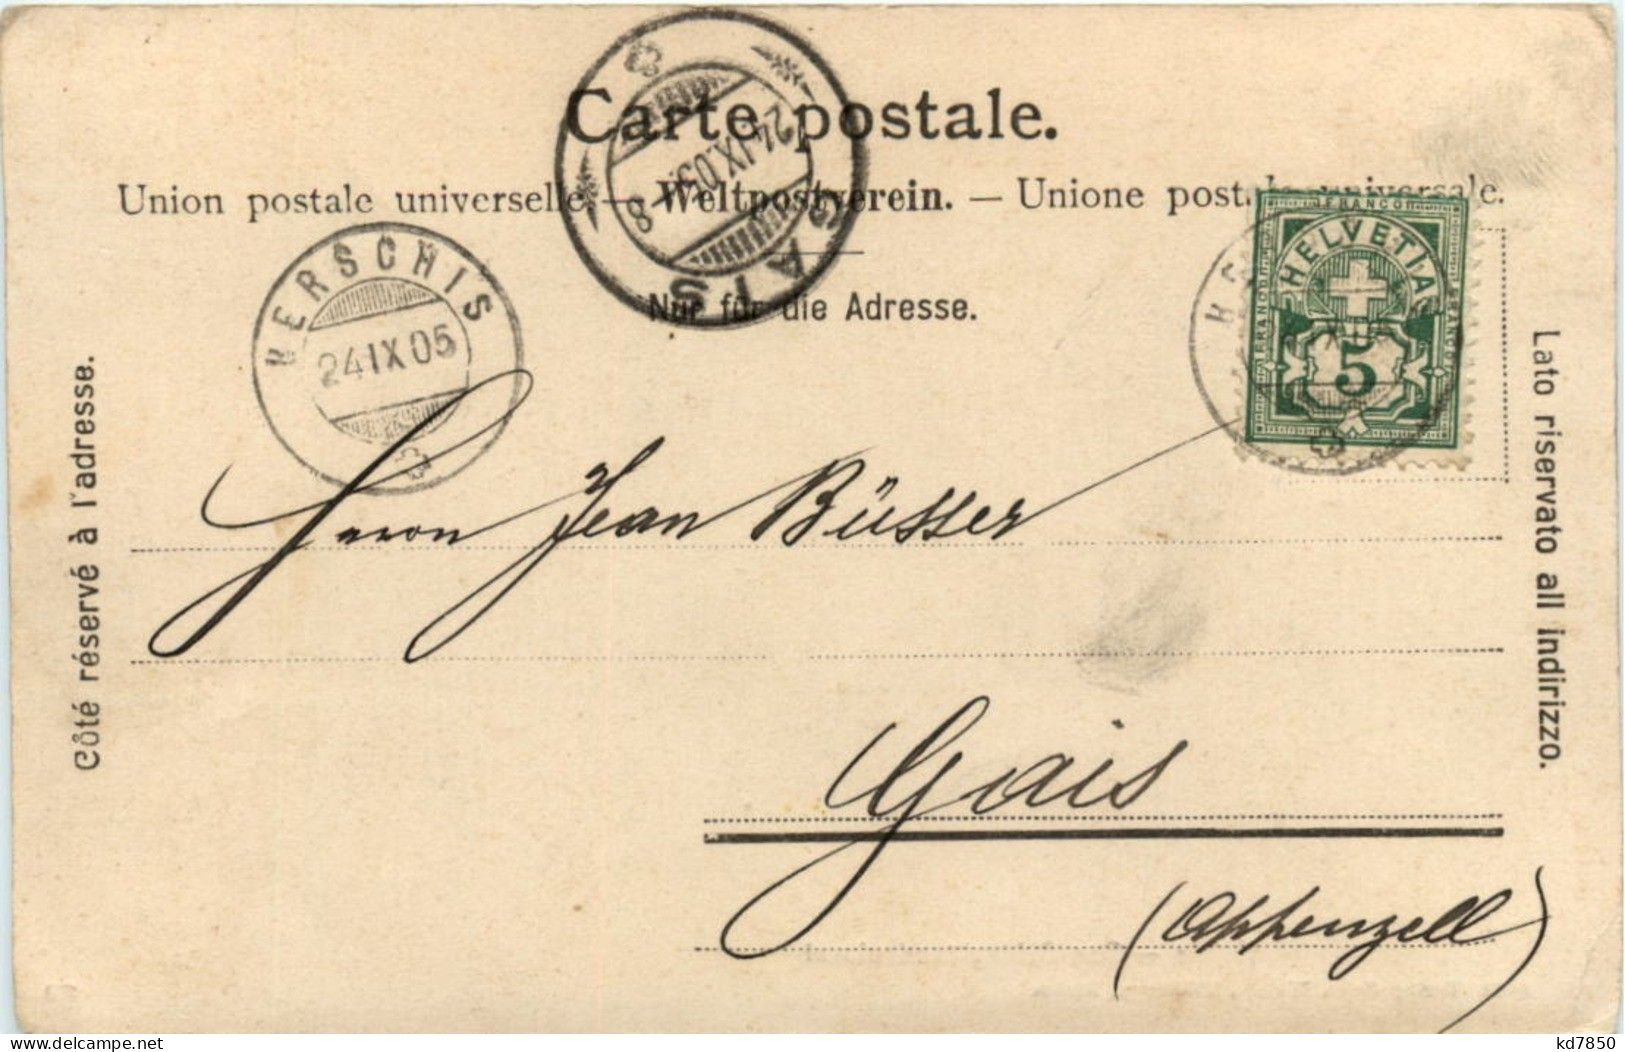 Carte postale.
Union postale universelle. — Weltpostverein. — Unione postale universale.
Nur für die Adresse.
BERSCHIS
24 IX 05
GAIS
24.IX.05. 8
FRANCO
HELVETIA
5
Côté réservé à l'adresse.
Lato riservato all indirizzo.
Herrn Jean Büsser
Gais
(Appenzell)
www.delcampe.net
kd7850